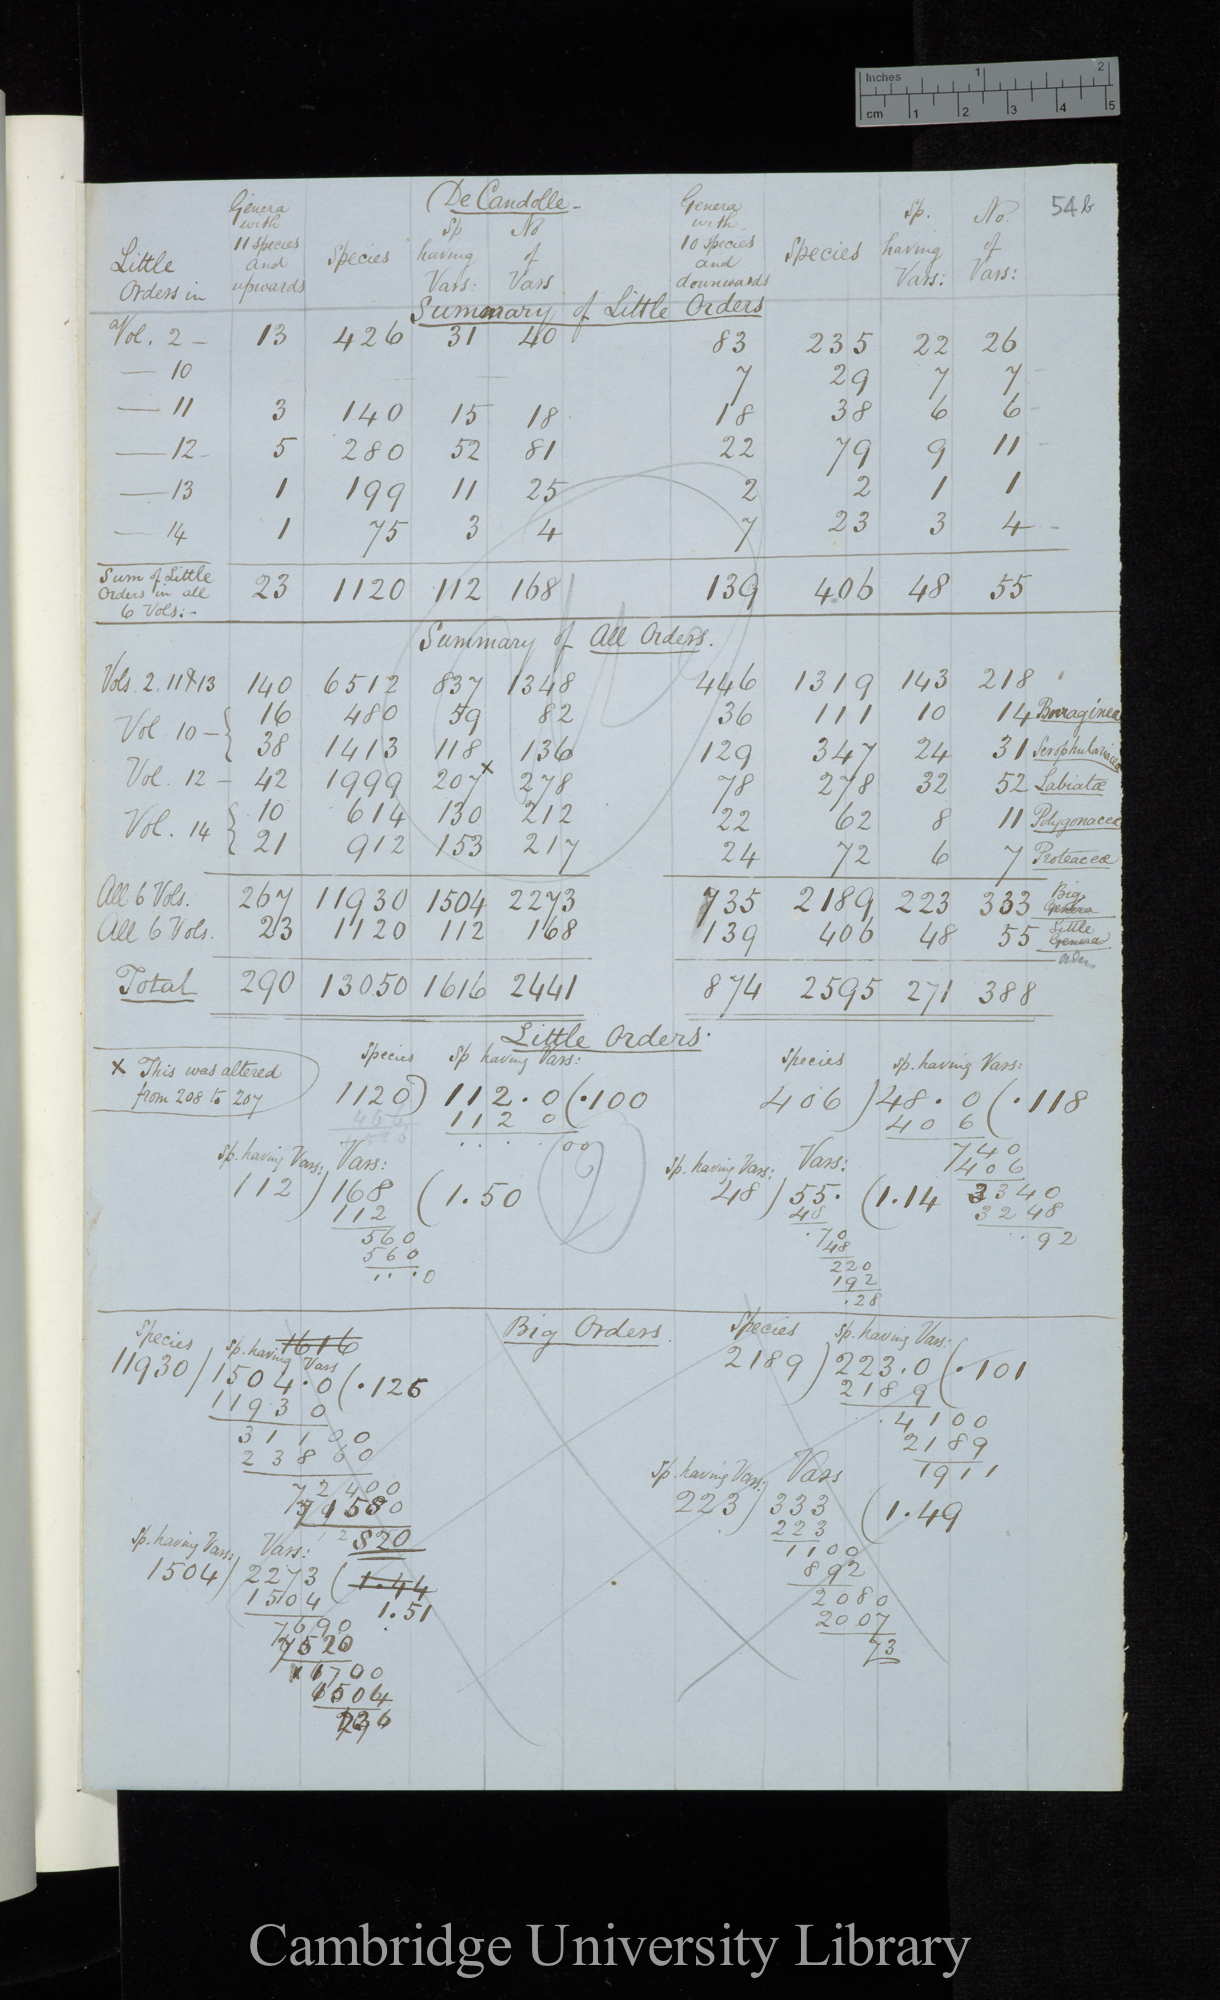 Inches 1 2
cm 1 2 3 4 5
54b
De Candolle
Little Orders in | Genera with 11 species and upwards | Species | Sp having Vars: | No of Vars | Genera with 10 species and downwards | Species | Sp. having Vars: | No. of Vars:
Summary of Little Orders
Vol. 2 – 13 426 31 40 83 235 22 26
— 10 7 29 7 7
— 11 3 140 15 18 18 38 6 6
— 12 5 280 52 81 22 79 9 11
— 13 1 199 11 25 2 2 1 1
— 14 1 75 3 4 7 23 3 4
Sum of Little Orders in all 6 Vols: – 23 1120 112 168 139 406 48 55
Summary of All Orders.
Vols. 2. 11 & 13 140 6512 837 1348 446 1319 143 218
Vol. 10 – { 16 480 59 82 36 111 10 14 Borragineæ
38 1413 118 136 129 347 24 31 Scrophulariaceæ
Vol. 12 – 42 1999 207x 278 78 278 32 52 Labiatæ
Vol. 14 { 10 614 130 212 22 62 8 11 Polygonaceæ
21 912 153 217 24 72 6 7 Proteaceæ
All 6 Vols. 267 11930 1504 2273 735 2189 223 333 Big Genera
All 6 Vols. 23 1120 112 168 139 406 48 55 Little Genera
orders
Total 290 13050 1616 2441 874 2595 271 388
Little Orders.
x This was altered
from 208 to 207
Species Sp having Vars:
1120) 112.0(.100
112 0
00
Sp. having Vars: Vars:
112) 168 (1.50
112
560
560
0
2
Species Sp. having Vars:
406)48.0(.118
40 6
740
406
3340
3248
92
Sp. having Vars: Vars:
48) 55. (1.14
48
70
48
220
192
.28
Big Orders.
1616
Species Sp. having Vars
11930)1504.0(.126
1193 0
311 00
238 60
72400
71580
820
Sp. having Vars: Vars:
1504) 2273 (1.44
1.51
1504
7690
7520
1700
1504
Species Sp. having Vars:
2189) 223.0(.101
218 9
4100
2189
1911
Sp. having Vars: Vars
223) 333 (1.49
223
1100
892
2080
2007
73
Cambridge University Library